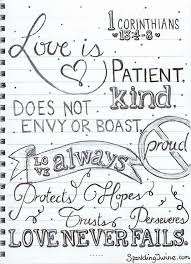 1 CORINTHIANS
13:4-8
Love is
PATIENT.
kind.
DOES NOT
ENVY OR BOAST.
proud
LOVE always
Protects Hopes
Trusts Perseveres
LOVE NEVER FAILS.
SparklingTwine.com